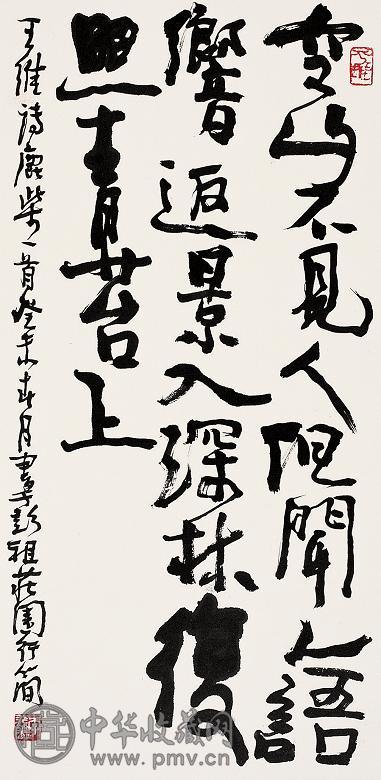 空山不見人但聞人語
響返景入深林復
照青苔上
王維詩鹿柴一首癸未春月書彭祖莊園行簡
中华收藏网
www.pmv.cn